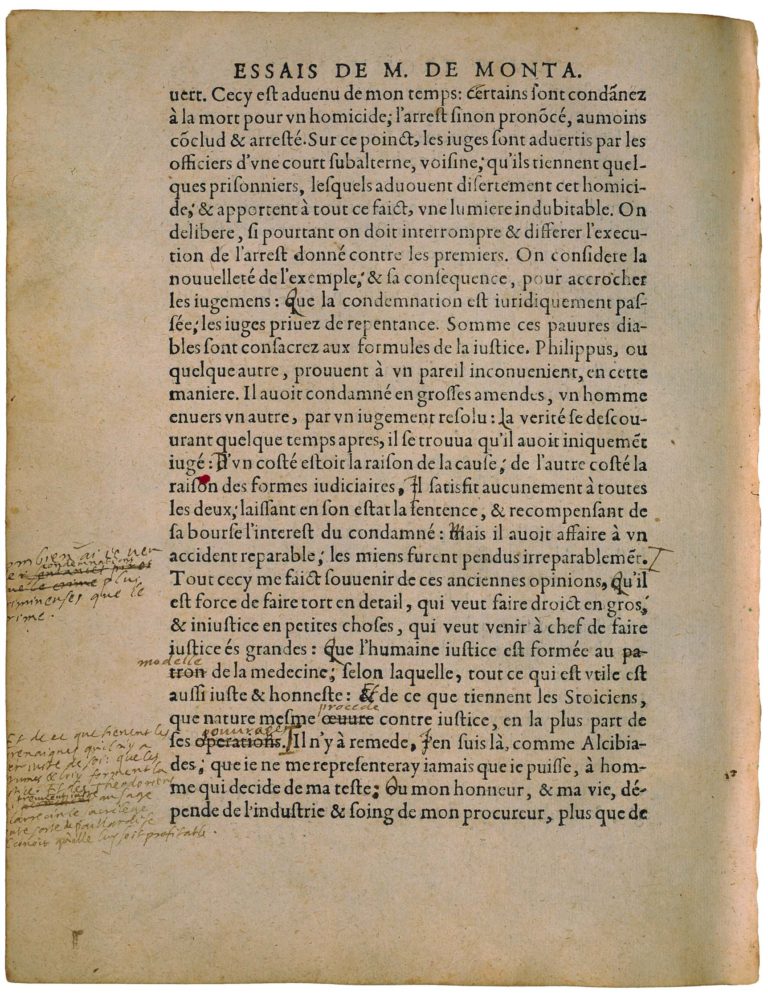 ESSAIS DE M. DE MONTA.
uert. Cecy est aduenu de mon temps: Certains sont condãnez
à la mort pour vn homicide; l'arrest sinon prononcé, aumoins
cõclud & arresté. Sur ce poinct, les iuges sont aduertis par les
officiers d'vne court subalterne, voisine, qu'ils tiennent quel-
ques prisonniers, lesquels aduouent disertement cet homici-
de, & apportent à tout ce faict, vne lumiere indubitable. On
delibere, si pourtant on doit interrompre & differer l'execu-
tion de l'arrest donné contre les premiers. On considere la
nouuelleté de l'exemple, & sa consequence, pour accrocher
les iugemens: Que la condemnation est iuridiquement pas-
sée; les iuges priuez de repentance. Somme ces pauures dia-
bles sont consacrez aux formules de la iustice. Philippus, ou
quelque autre, prouuent à vn pareil inconuenient, en cette
maniere. Il auoit condamné en grosses amendes, vn homme
enuers vn autre, par vn iugement resolu: La verité se descou-
urant quelque temps apres, il se trouua qu'il auoit iniquemẽt
iugé: D'vn costé estoit la raison de la cause; de l'autre costé la
raison des formes iudiciaires, Il satisfit aucunement à toutes
les deux, laissant en son estat la sentence, & recompensant de
sa bourse l'interest du condamné: Mais il auoit affaire à vn
accident reparable; les miens furent pendus irreparablemẽt.
combien ai ie veu
condemnations
plus
crimineuses que le
crime.
Tout cecy me faict souuenir de ces anciennes opinions, Qu'il
est force de faire tort en detail, qui veut faire droict en gros,
& iniustice en petites choses, qui veut venir à chef de faire
iustice és grandes: Que l'humaine iustice est formée au pa-
modelle
tron de la medecine; selon laquelle, tout ce qui est vtile est
aussi iuste & honneste: Et de ce que tiennent les Stoiciens,
procede
que nature mesme œuure contre iustice, en la plus part de
ouurages
ses operations. Il n'y à remede, I'en suis là, comme Alcibia-
des, que ie ne me representeray iamais que ie puisse, à hom-
me qui decide de ma teste; Ou mon honneur, & ma vie, dé-
pende de l'industrie & soing de mon procureur, plus que de
Et de ce que tienent les
Cyrenaiques qu'il n'y a
rien iuste de soi: que les
costumes & loix forment la
iustice. Et les Theodoriens
qui
larrecin
toute sorte de paillardise
conoit qu'elle luy soit profitable.